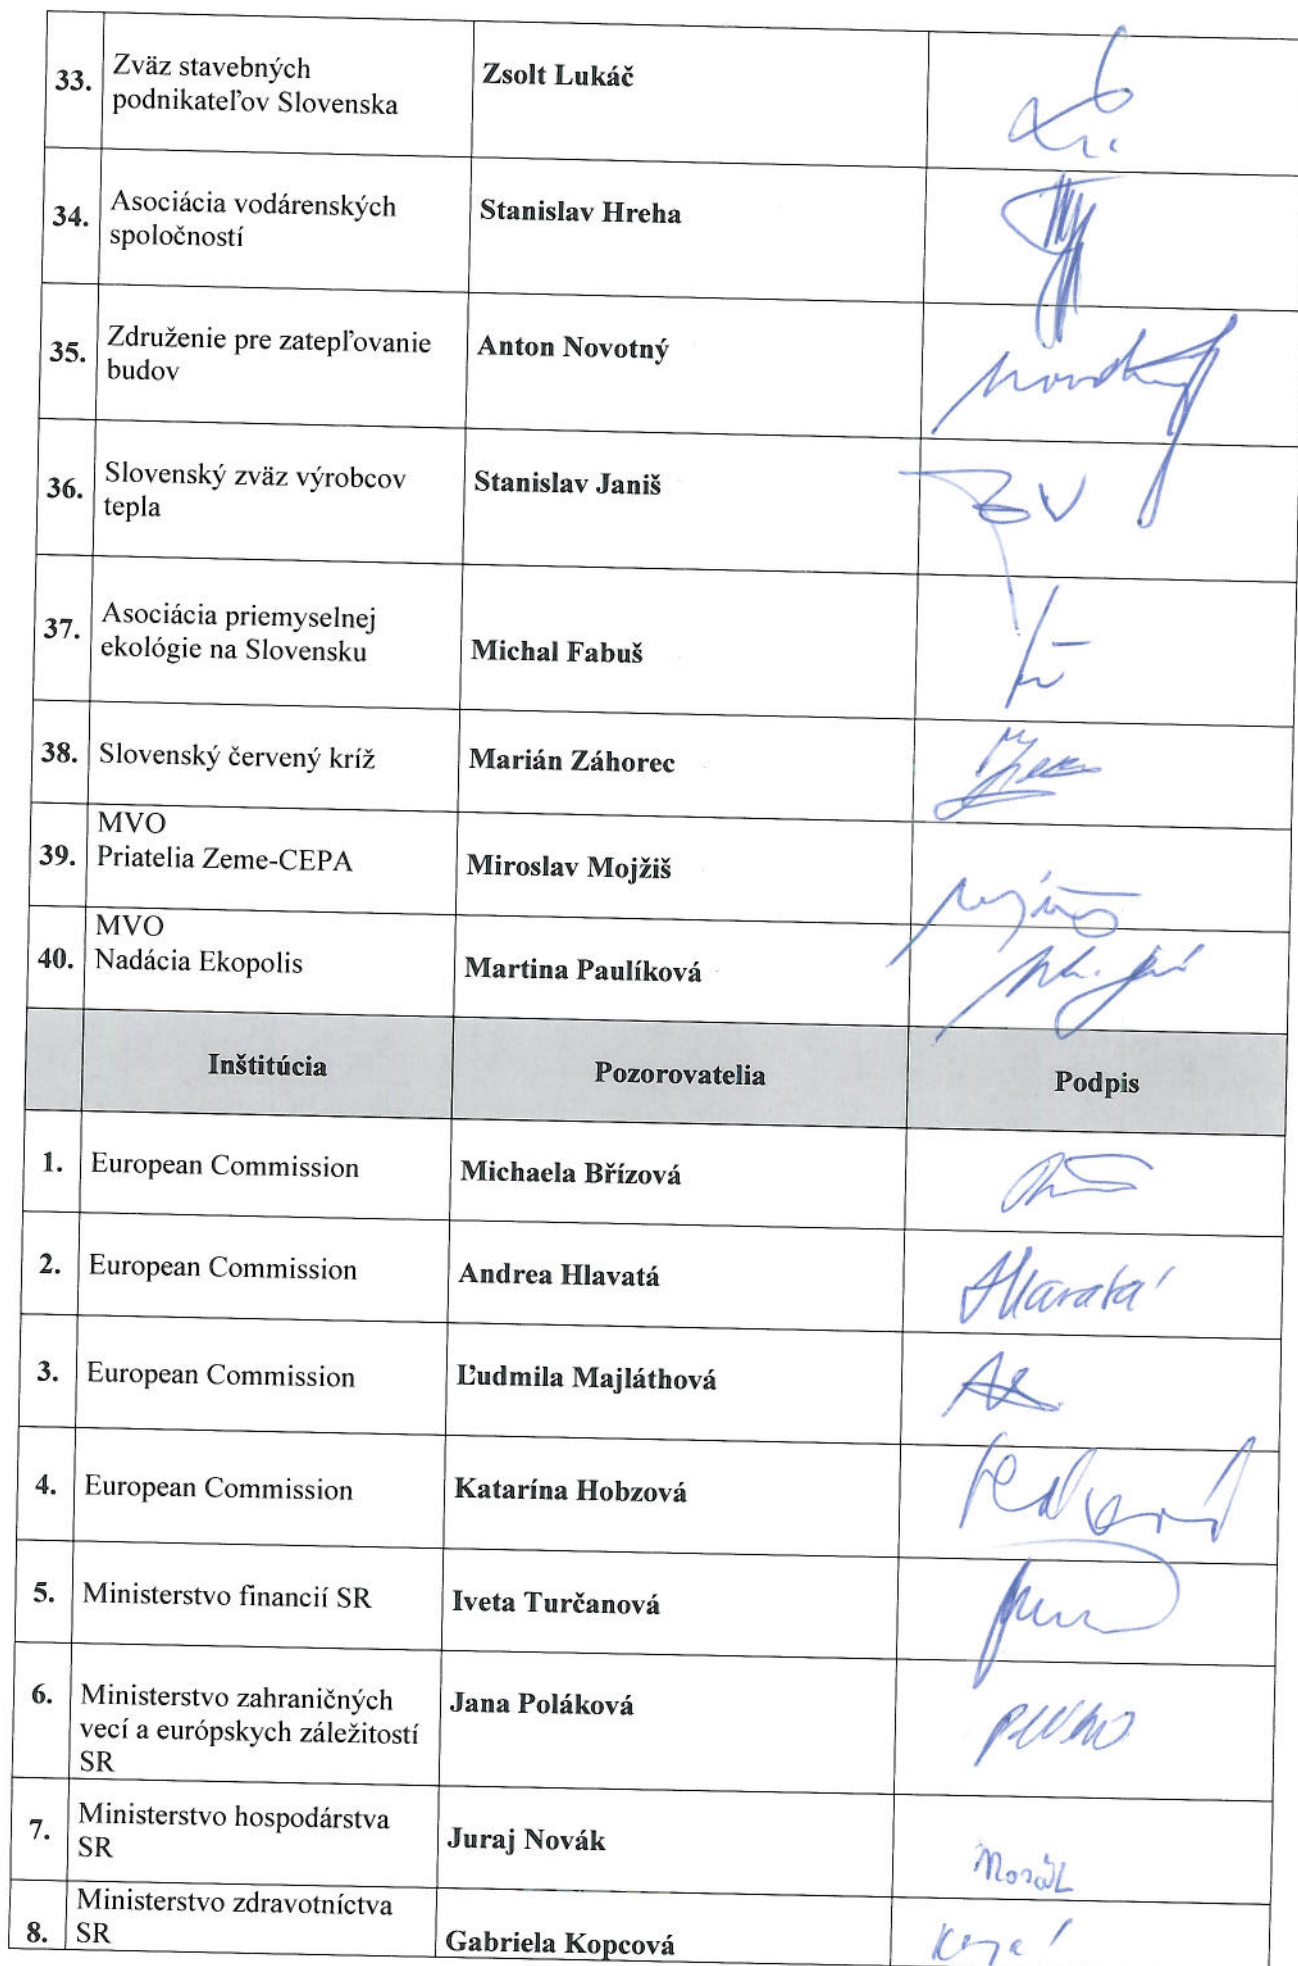 33. Zväz stavebných
podnikateľov Slovenska
Zsolt Lukáč
34. Asociácia vodárenských
spoločností
Stanislav Hreha
35. Združenie pre zatepľovanie
budov
Anton Novotný
36. Slovenský zväz výrobcov
tepla
Stanislav Janiš
ZV
37. Asociácia priemyselnej
ekológie na Slovensku
Michal Fabuš
38. Slovenský červený kríž
Marián Záhorec
39. MVO
Priatelia Zeme-CEPA
Miroslav Mojžiš
40. MVO
Nadácia Ekopolis
Martina Paulíková
Inštitúcia Pozorovatelia Podpis
1. European Commission Michaela Břízová
2. European Commission Andrea Hlavatá Hlavatá
3. European Commission Ľudmila Majláthová
4. European Commission Katarína Hobzová
5. Ministerstvo financií SR Iveta Turčanová
6. Ministerstvo zahraničných
vecí a európskych záležitostí
SR
Jana Poláková
7. Ministerstvo hospodárstva
SR
Juraj Novák
8. Ministerstvo zdravotníctva
SR
Gabriela Kopcová